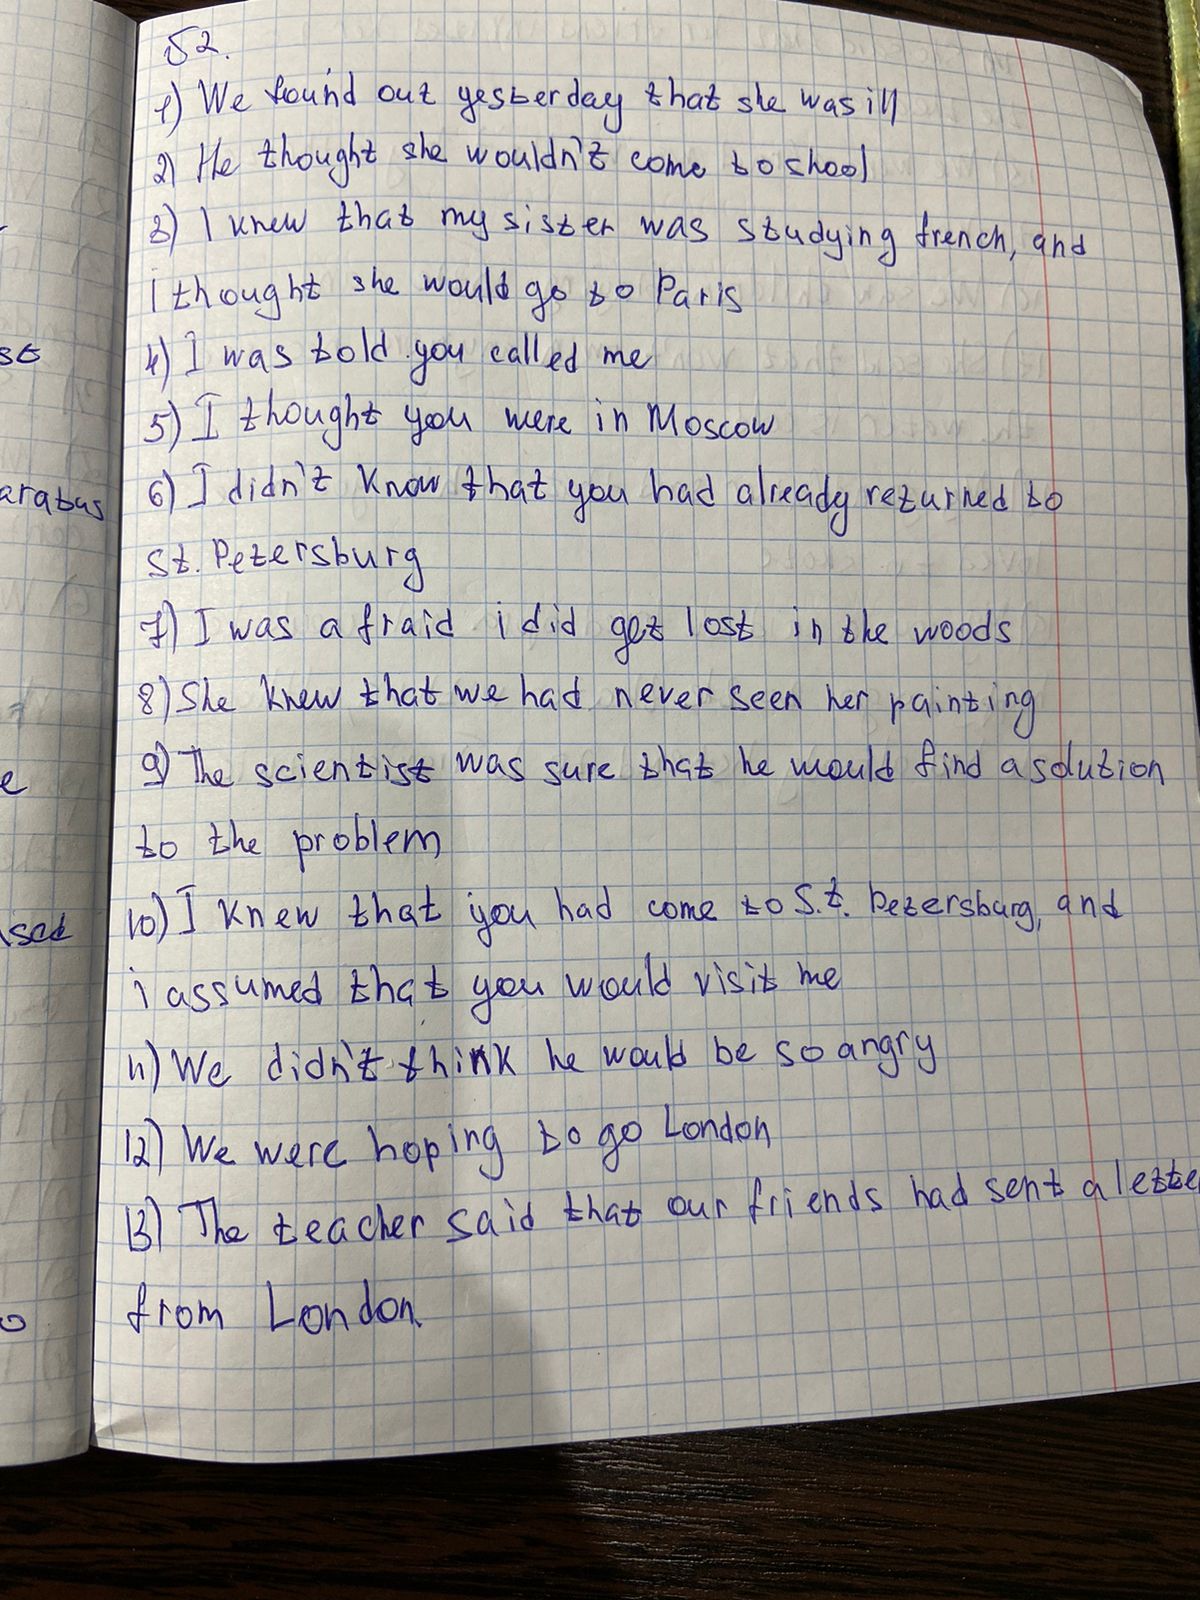 52.
1) We found out yesterday that she was ill
2) He thought she wouldn't come to shool
3) I knew that my sister was studying french, and
i thought she would go to Paris
st
4) I was told you called me
5) I thought you were in Moscow
aratus
6) I didn't know that you had already returned to
st. Petersburg
7) I was afraid i did get lost in the woods
8) She knew that we had never seen her painting
e
9) The scientist was sure that he would find a solution
to the problem
10) I knew that you had come to S.t. Petersburg, and
i assumed that you would visit me
11) We didn't think he would be so angry
12) We were hoping to go London
13) The teacher said that our friends had sent a lette
from London.
o